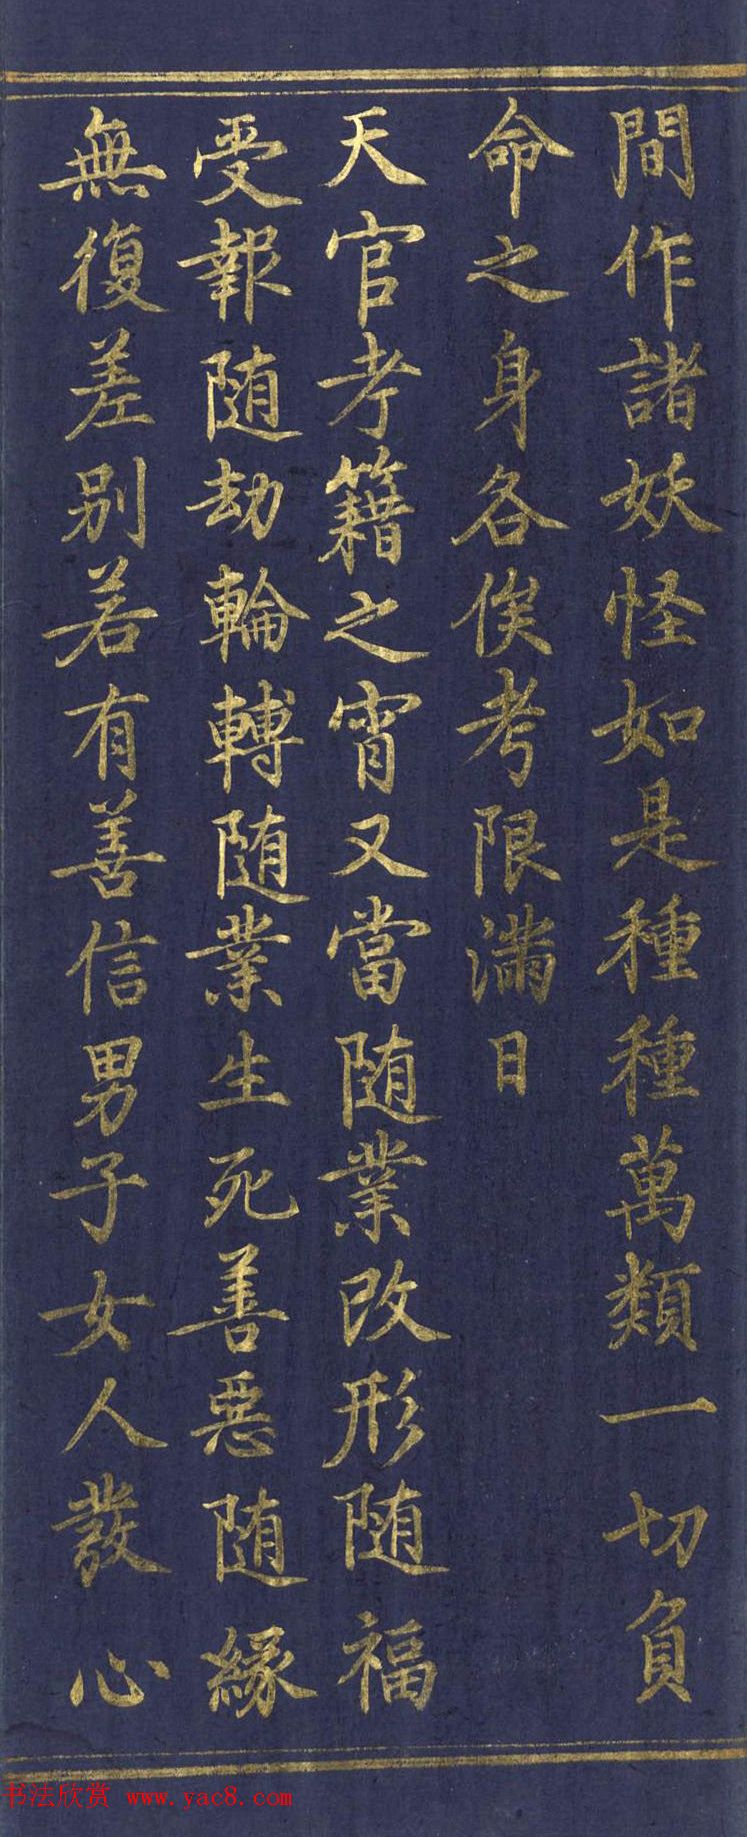 間作諸妖怪如是種種萬類一切負
命之身各俟考限滿日
天官考籍之宵又當随業改形随福
受報随劫輪轉随業生死善惡随緣
無復差别若有善信男子女人發心
书法欣赏 www.yac8.com